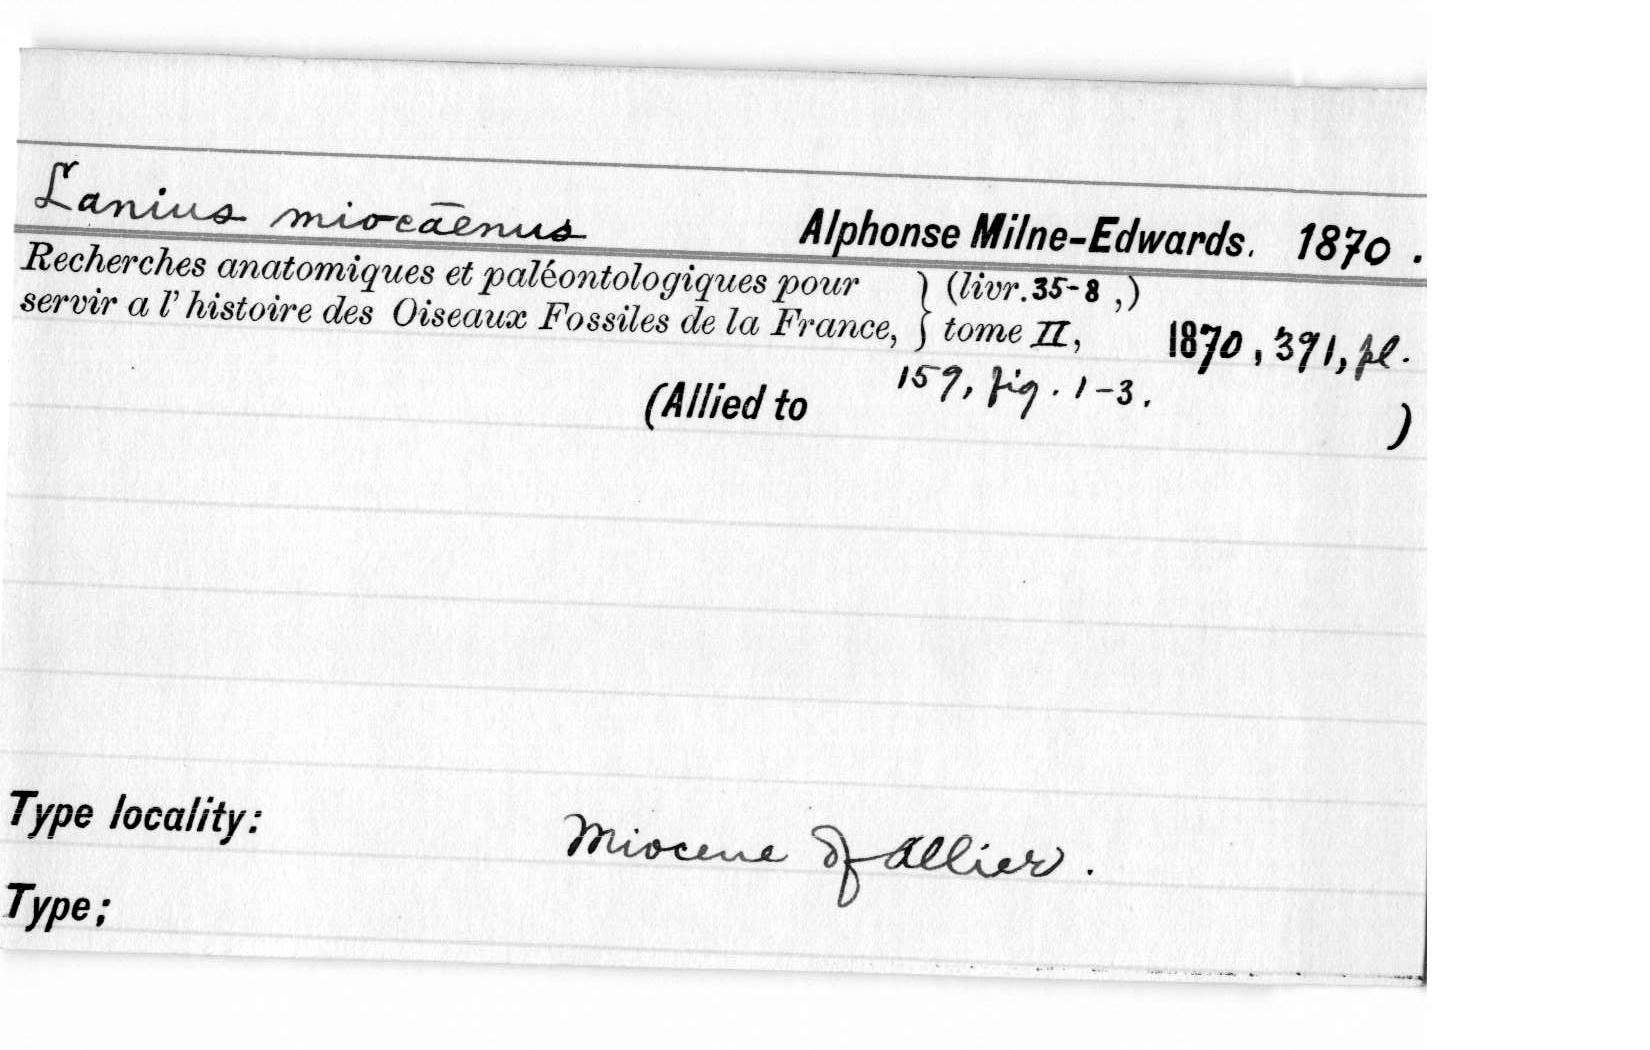 Lanius miocāenus Alphonse Milne-Edwards. 1870.
Recherches anatomiques et paléontologiques pour } (livr. 35-8,)
servir a l'histoire des Oiseaux Fossiles de la France, } tome II, 1870, 391, pl.
159, fig. 1-3.
(Allied to )
Type locality: Miocene of Allier.
Type;